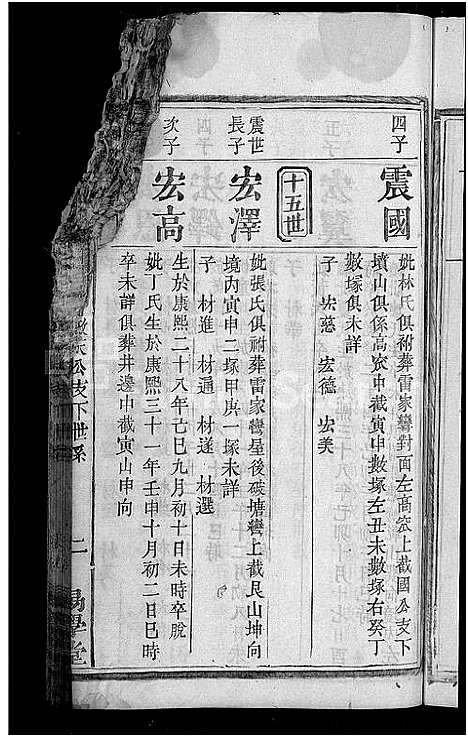 四子
震國
妣林氏俱祔葬雷家灣對面左高㘭上截國公支下
墳山俱係高㘭中截寅申數塚左丑未數塚右癸丁
數塚俱未詳
子 宏慈 宏德 宏美
十五世
震世長子
宏澤
妣張氏俱祔葬雷家灣屋後破塘灣上截艮山坤向
境內寅申二塚甲庚一塚未詳
子 材進 材通 材遂 材選
次子
宏高
生於康熙二十八年己巳九月初十日未時卒脫
妣丁氏生於康熙三十一年壬申十月初二日巳時
卒未詳俱葬井邊中截寅山申向
公支下世系
二